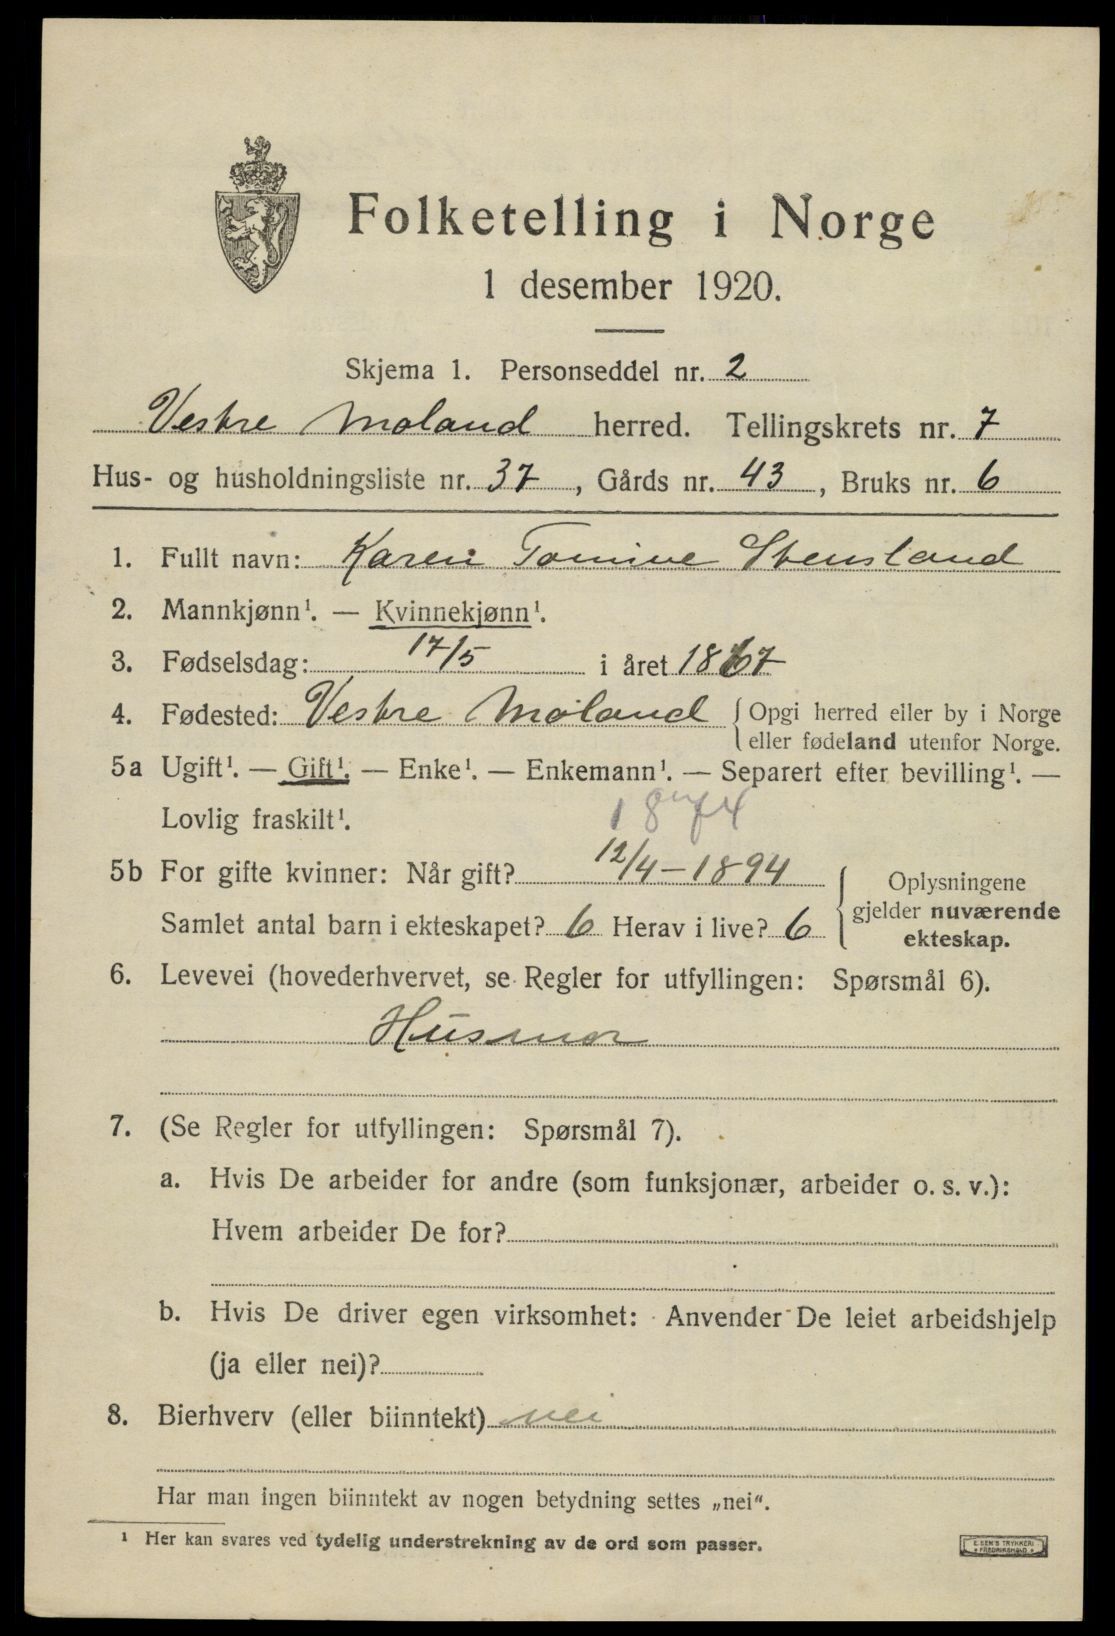 Folketelling i Norge
1 desember 1920.
Skjema 1. Personseddel nr. 2
Vestre Moland herred. Tellingskrets nr. 7
Hus- og husholdningsliste nr. 37, Gårds nr. 43, Bruks nr. 6
1. Fullt navn: Karen Tomine Stensland
2. Mannkjønn¹. — Kvinnekjønn¹.
3. Fødselsdag: 17/5 i året 1867
4. Fødested: Vestre Moland { Opgi herred eller by i Norge
eller fødeland utenfor Norge.
5a Ugift¹. — Gift¹. — Enke¹. — Enkemann¹. — Separert efter bevilling¹. —
Lovlig fraskilt¹.
5b For gifte kvinner: Når gift? 12/4 – 1894
Samlet antal barn i ekteskapet? 6 Herav i live? 6
{ Oplysningene
gjelder nuværende
ekteskap.
6. Levevei (hovederhvervet, se Regler for utfyllingen: Spørsmål 6).
Husmor
7. (Se Regler for utfyllingen: Spørsmål 7).
a. Hvis De arbeider for andre (som funksjonær, arbeider o. s. v.):
Hvem arbeider De for?
b. Hvis De driver egen virksomhet: Anvender De leiet arbeidshjelp
(ja eller nei)?
8. Bierhverv (eller biinntekt) nei
Har man ingen biinntekt av nogen betydning settes „nei“.
¹ Her kan svares ved tydelig understrekning av de ord som passer.
E. SEM'S TRYKKERI
FREDRIKSHALD